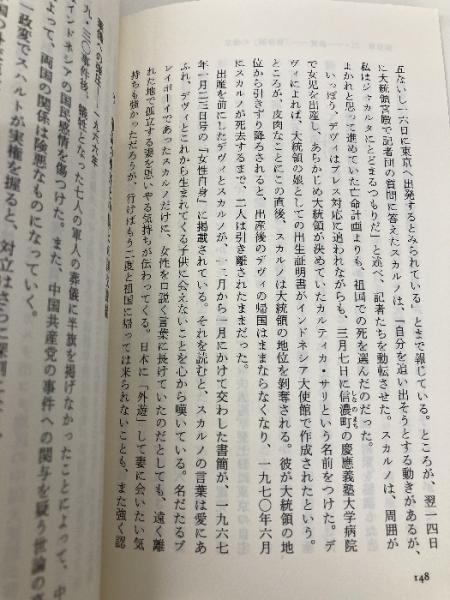 五ないし一六日に東京へ出発するとみられている。」とまで報じている。ところが、翌一四日
に大統領宮殿で記者団の質問に答えたスカルノは、「自分を追い出そうとする動きがあるが、
私はジャカルタにとどまるつもりだ」と述べ、記者たちを動転させた。スカルノは、周囲が
よかれと思って進めていた亡命計画よりも、祖国での死を選んだのだった。
いっぽう、デヴィはプレス対応に追われながらも、三月七日に信濃町の慶應義塾大学病院
しなのまち
で女児を出産し、あらかじめ大統領が決めていたカルティカ・サリという名前をつけた。デ
ヴィによれば、大統領の娘としての出生証明書がインドネシア大使館で作成されたという。
ところが、皮肉なことにこの直後、スカルノは大統領の地位を剝奪される。彼が大統領の地
位から引きずり降ろされると、出産後のデヴィの帰国はままならなくなり、一九七〇年六月
にスカルノが死去するまで、二人は引き離されたままだった。
出産を前にしたデヴィとスカルノが、一二月から一月にかけて交わした書簡が、一九六七
年一月二三日号の『女性自身』に掲載されている。それを読むと、スカルノの言葉は愛にあ
ふれ、デヴィとこれから生まれてくる子供に会えないことを心から嘆いている。名だたるプ
レイボーイであったスカルノだけに、女性を口説く言葉に長けていたのだとしても、遠く離
れた地で孤立する妻を思いやる気持ちが伝わってくる。日本に「外遊」して妻に会いたい気
持ちも強かっただろうが、行けばもう二度と祖国に帰っては来られないことも、また強く認
148
一九六六年
九・三〇事件後、犠牲となった七人の軍人の葬儀に半旗を掲げなかったことによって、中
ンドネシアの国民感情を傷つけた。また、中国共産党の事件への関与を疑
よって、両国の関係は険悪なものになっていい
政変でスハルトが実権を握ると、対立はさらに深刻